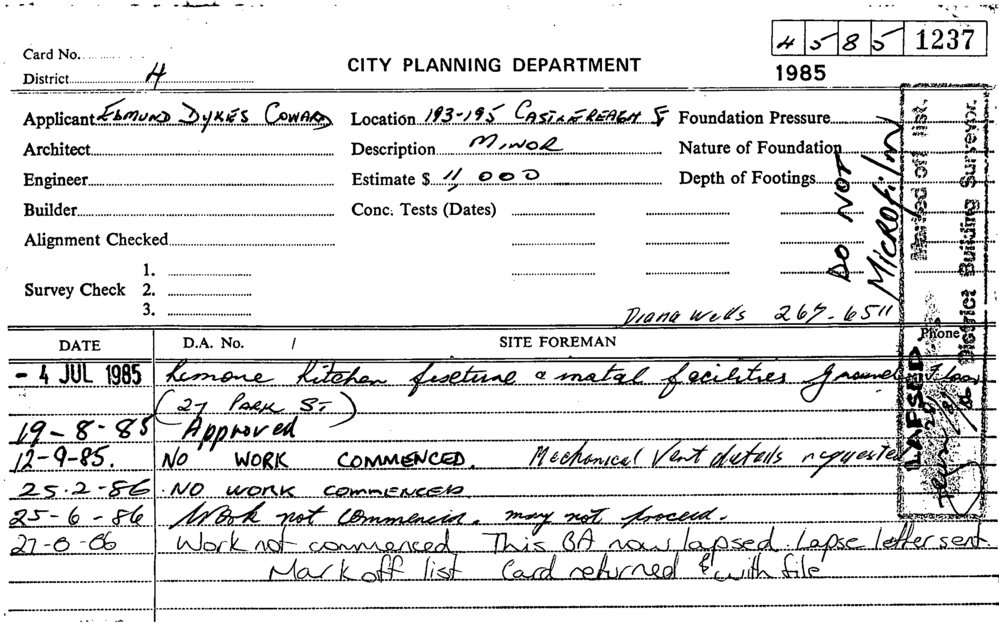 4 5 8 5 1237
Card No.
CITY PLANNING DEPARTMENT
District H
1985
Applicant EDMUND DYKES COWARD Location 193-195 CASTLEREAGH St Foundation Pressure
Architect Description MINOR Nature of Foundation
Engineer Estimate $ 11,000 Depth of Footings
Builder Conc. Tests (Dates)
Alignment Checked
1.
Survey Check 2.
3.
DO NOT
MICROFILM
Marked off list.
District Building Surveyor.
LAPSED
Diana Wells 267-6511
Phone
DATE D.A. No. / SITE FOREMAN
- 4 JUL 1985 Remove Kitchen & facilities Ground Floor
(27 PARK ST)
19-8-85 Approved
12-9-85. NO WORK COMMENCED. Mechanical Vent details requested
25.2-86 NO WORK COMMENCED
25-6-86 Work not commenced. may not proceed.
Work not commenced This BA now lapsed. Lapse letter sent.
Mark off list Card returned & with file